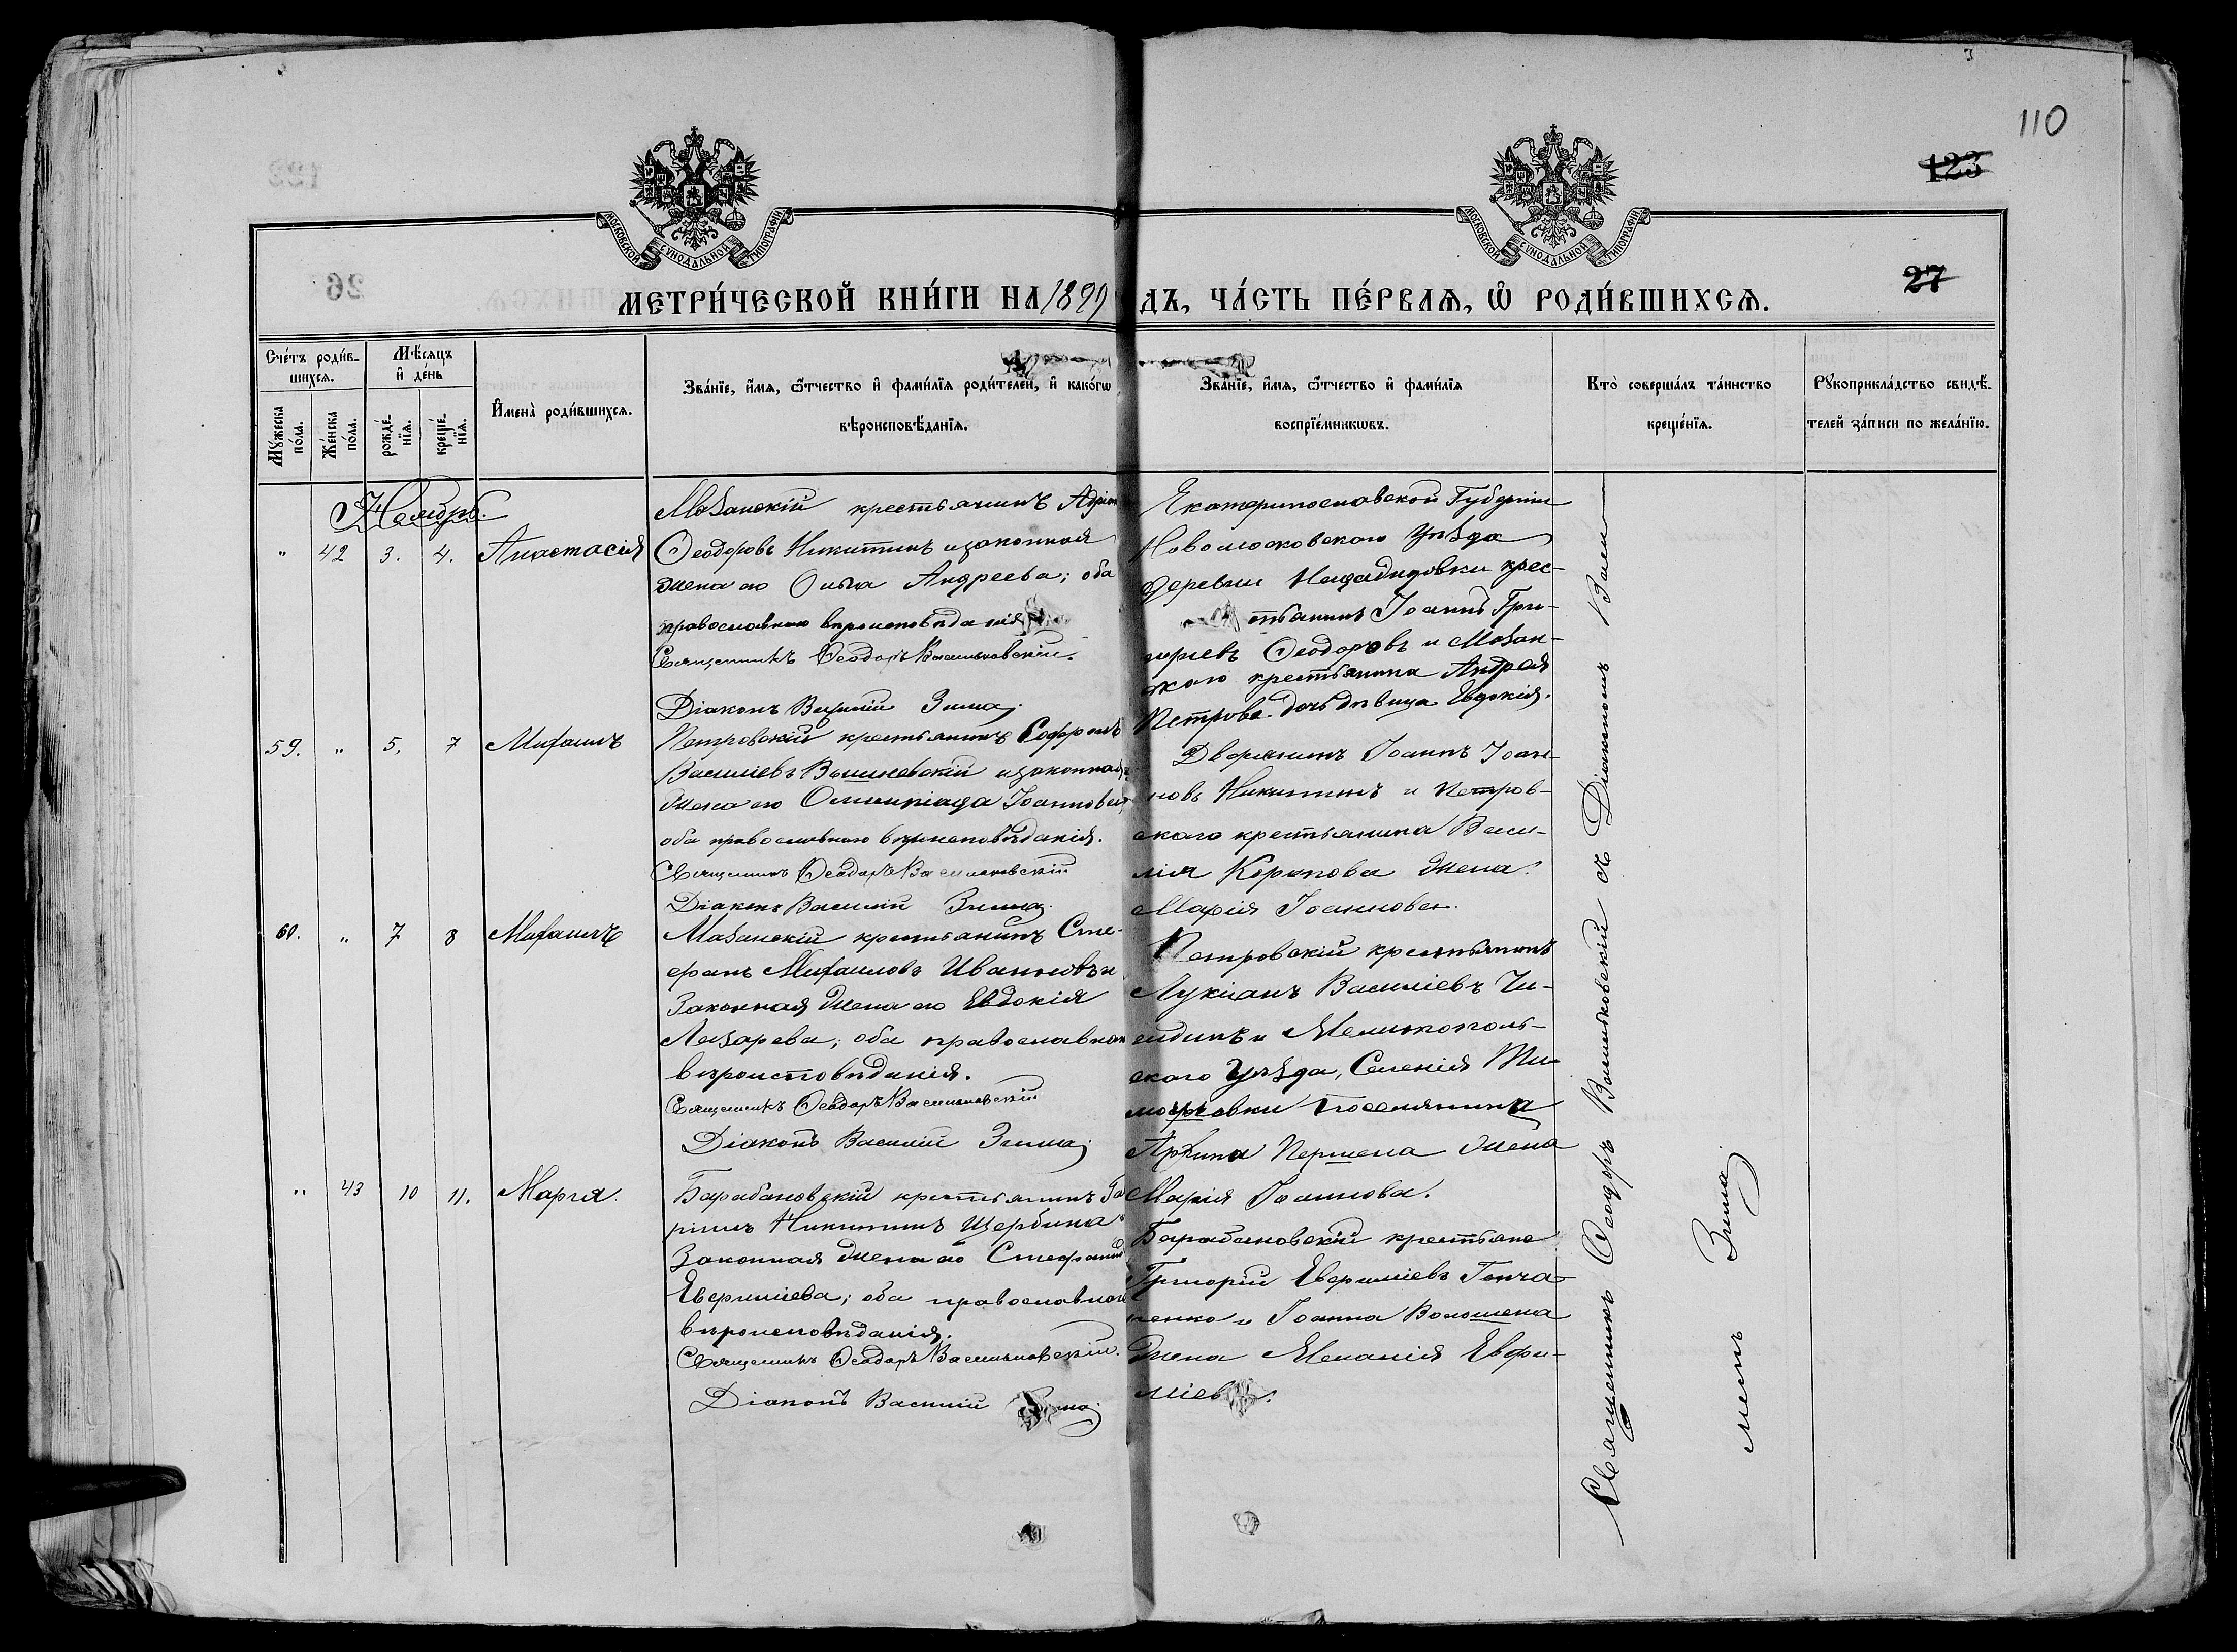 110
123
27
МОСКОВСКОЙ СѴНОДАЛЬНОЙ ТИПОГРАФІИ
МОСКОВСКОЙ СѴНОДАЛЬНОЙ ТИПОГРАФІИ
МЕТРИ́ЧЕСКОЙ КНИ́ГИ НА 1899 ДЪ, ЧА́СТЬ ПЕ́РВАЯ, Ѡ РОДИ́ВШИХСЯ.
Сче́тъ роди́в-
шихся.
Мѣ́сяцъ
и де́нь
Му́жеска
по́ла.
Же́нска
по́ла.
рожде́-
нія.
креще́-
нія.
Имена̀ роди́вшихся.
Зва́ніе, и́мя, ѻ́тчество и фами́лія роди́телей, и како́гѡ
вѣроисповѣ́данія.
Зва́ніе, и́мя, ѻ́тчество и фами́лія
воспріе́мникѡвъ.
Кто̀ соверша́лъ та́инство
креще́нія.
Рукоприкла́дство свидѣ́-
телей за́писи по жела́нію.
Ноябрь.
" 42 3. 4. Анастасія
Мазанскій крестьянинъ
Ѳеодоровъ Никитинъ и законная
жена его Ольга Андреева; оба
православнаго вѣроисповѣданія
Священникъ Ѳеодоръ Васильковскій.
Діаконъ Василій Зима.
Екатеринославской Губерніи
Новомосковскаго Уѣзда
деревни крес-
тьянинъ Іоаннъ Гри-
горьевъ Ѳеодоровъ и Мазан-
скаго крестьянина Андрея
Петрова дочь дѣвица Евдокія.
59. " 5. 7 Михаилъ
Петровскій крестьянинъ Софронъ
Василіевъ Вышневскій и законная
жена его Олимпіада Іоаннова,
оба православнаго вѣроисповѣданія.
Священникъ Ѳеодоръ Васильковскій
Діаконъ Василій Зима.
Дворянинъ Іоаннъ Іоан-
новъ Никитинъ и Петров-
скаго крестьянина Васи-
лія жена
Марія Іоаннова.
60. " 7 8 Михаилъ
Мазанскій крестьянинъ Сте-
фанъ Михаиловъ Ивановъ и
Законная жена его Евдокія
Лазарева; оба православнаго
вѣроисповѣданія.
Священникъ Ѳеодоръ Васильковскій
Діаконъ Василій Зима.
Петровскій крестьянинъ
Лукіанъ Василіевъ
и Мелитополь-
скаго Уѣзда, Селенія Ти-
мошовки поселянина
жена
Марія Іоаннова.
" 43 10 11. Марія.
Барабановскій крестьянинъ
Никитинъ Щербина
Законная жена его Стефанида
оба православнаго
вѣроисповѣданія.
Священникъ Ѳеодоръ Васильковскій.
Діаконъ Василій Зима.
Барабановскій крестьяне
Григорій Гонча-
ренко и Іоанна Волошена
жена Меланія Евфи-
міева.
Священникъ Ѳеодоръ Васильковскій съ Діакономъ Васи-
ліемъ Зима.